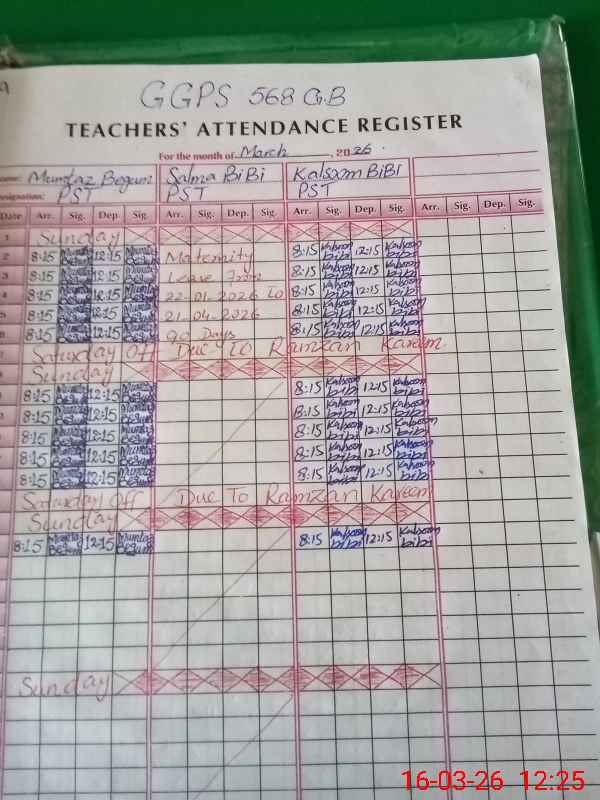 GGPS 568 G.B
TEACHERS' ATTENDANCE REGISTER
For the month of March, 2026.
Mumtaz Begum Salma BiBi Kalsoom BiBi
PST PST PST
Date Arr. Sig. Dep. Sig. Arr. Sig. Dep. Sig. Arr. Sig. Dep. Sig. Arr. Sig. Dep. Sig.
1 Sunday
2 8:15 Mumtaz Begum 12:15 Mumtaz Begum Maternity 8:15 Kalsoom bibi 12:15 Kalsoom bibi
3 8:15 Mumtaz Begum 12:15 Mumtaz Begum Leave From 8:15 Kalsoom bibi 12:15 Kalsoom bibi
4 8:15 Mumtaz Begum 12:15 Mumtaz Begum 22-01-2026 To 8:15 Kalsoom bibi 12:15 Kalsoom bibi
8:15 Mumtaz Begum 12:15 Mumtaz Begum 21-04-2026 8:15 Kalsoom bibi 12:15 Kalsoom bibi
8:15 Mumtaz Begum 12:15 Mumtaz Begum 90 Days 8:15 Kalsoom bibi 12:15 Kalsoom bibi
Saturday Off Due To Ramzan Kareem
Sunday
8:15 Mumtaz Begum 12:15 Mumtaz Begum 8:15 Kalsoom bibi 12:15 Kalsoom bibi
8:15 Mumtaz Begum 12:15 Mumtaz Begum 8:15 Kalsoom bibi 12:15 Kalsoom bibi
8:15 Mumtaz Begum 12:15 Mumtaz Begum 8:15 Kalsoom bibi 12:15 Kalsoom bibi
8:15 Mumtaz Begum 12:15 Mumtaz Begum 8:15 Kalsoom bibi 12:15 Kalsoom bibi
8:15 Mumtaz Begum 12:15 Mumtaz Begum 8:15 Kalsoom bibi 12:15 Kalsoom bibi
Saturday Off Due To Ramzan Kareem
Sunday
8:15 Mumtaz Begum 12:15 Mumtaz Begum 8:15 Kalsoom bibi 12:15 Kalsoom bibi
Sunday
16-03-26 12:25